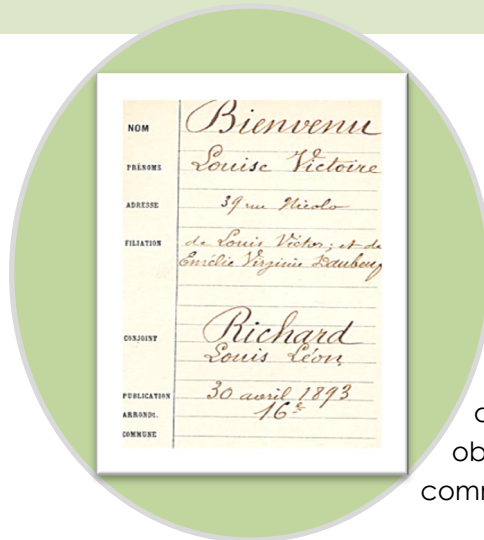 NOM Bienvenu
PRÉNOMS Louise Victoire
ADRESSE 39 rue Nicolo
FILIATION de Louis Victor; et de
Emélie Virginie
CONJOINT Richard
Louis Léon
PUBLICATION 30 avril 1893
ARRONDt. 16e
COMMUNE
ob
comm